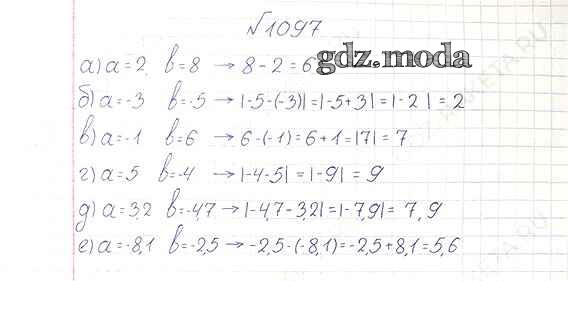 №1097
а) a=2 b=8 → 8-2=6
gdz.moda
б) a=-3 b=-5 → |-5-(-3)|=|-5+3|=|-2|=2
в) a=-1 b=6 → 6-(-1)=6+1=|7|=7
г) a=5 b=-4 → |-4-5|=|-9|=9
д) a=3,2 b=-4,7 → |-4,7-3,2|=|-7,9|=7,9
е) a=-8,1 b=-2,5 → -2,5-(-8,1)=-2,5+8,1=5,6